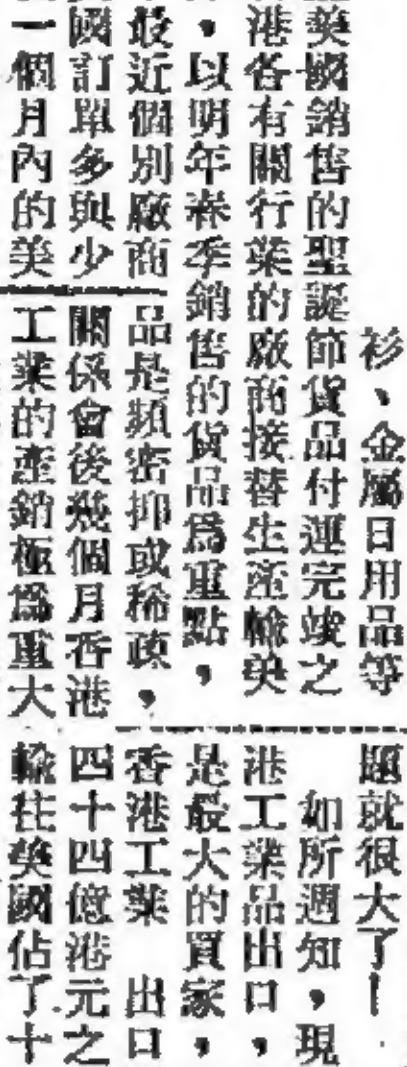 衫、金屬日用品等
美國銷售的聖誕節貨品付運完竣之
港各有關行業的廠商接替生產輸美
，以明年春季銷售的貨品爲重點，
最近個別廠商
國訂單多與少
一個月內的美
品是頻密抑或稀疎，
關係會後幾個月香港
工業的產銷極爲重大
題就很大了！
如所週知，現
港工業品出口，
是最大的買家，
香港工業 出口
四十四億港元之
輸往美國佔了十